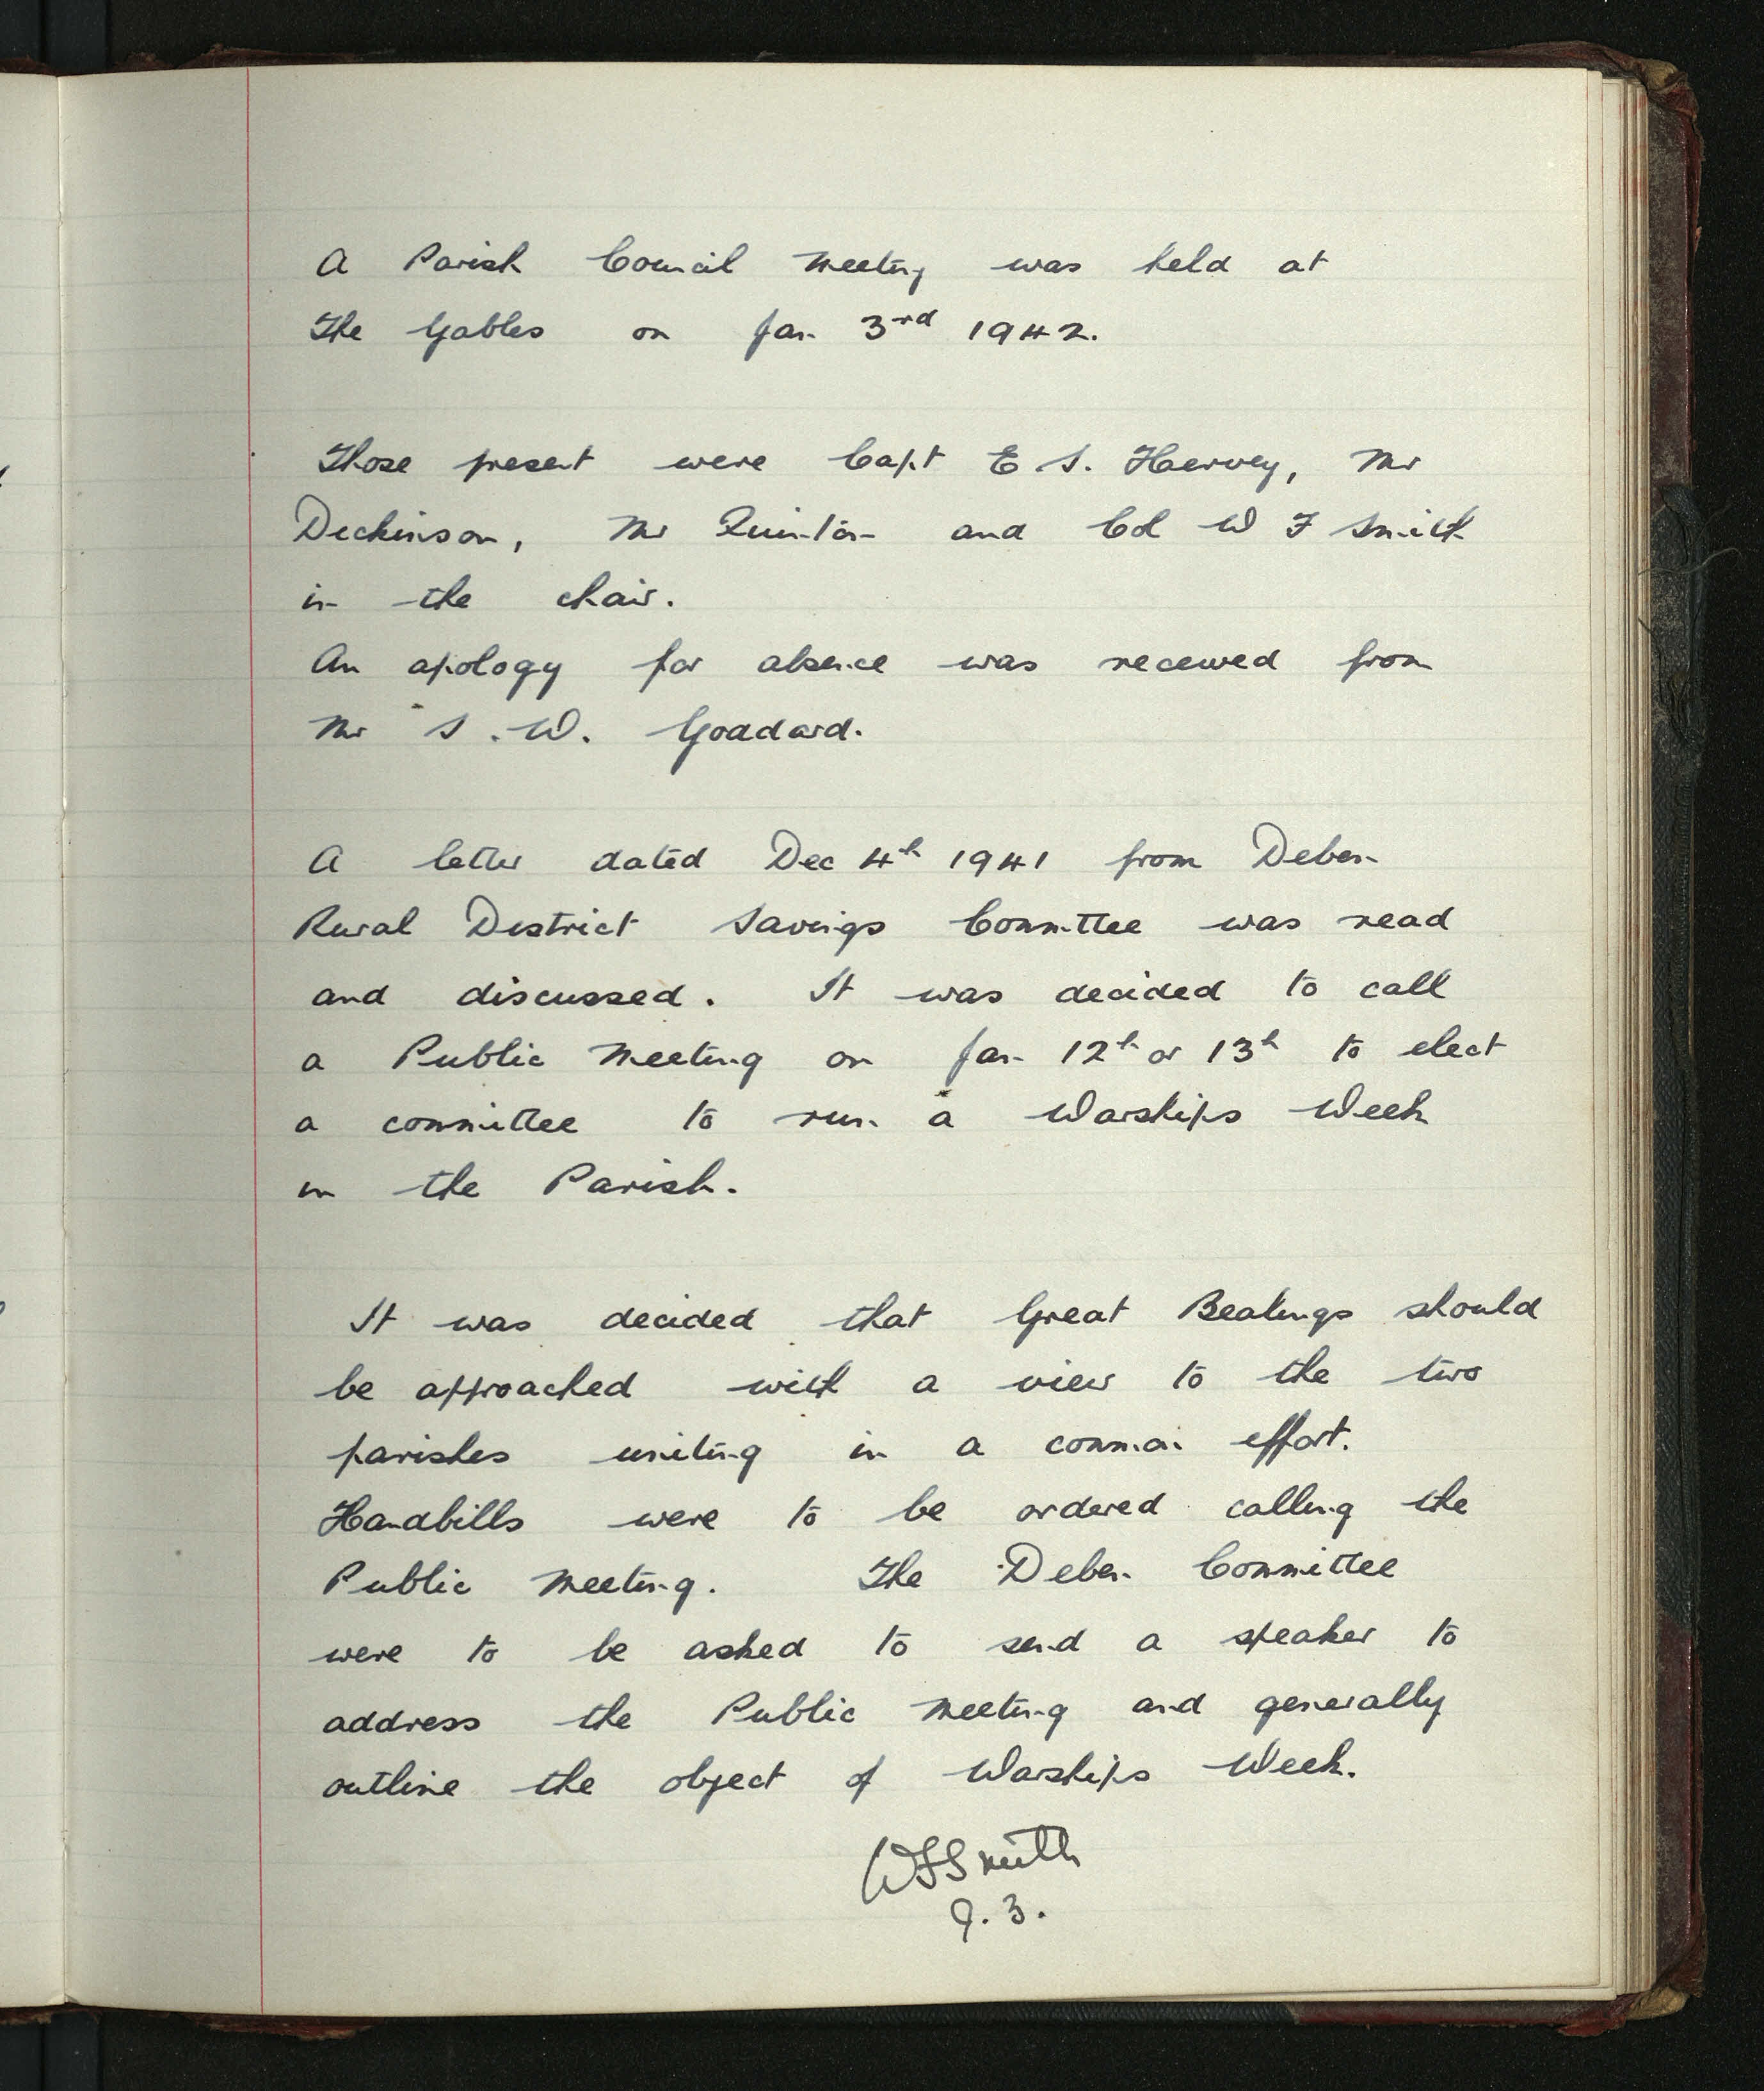 A Parish Council Meeting was held at
The Gables on Jan 3rd 1942.
Those present were Capt E S. Haervey, Mr
Deckinson, Mr Quinton and Col W F Smith
in the chair.
An apology for absence was received from
Mr S. W. Goddard.
A letter dated Dec 4th 1941 from Deben
Rural District Savings Committee was read
and discussed. It was decided to call
a Public Meeting on Jan 12th or 13th to elect
a committee to run a Warships Week
in the Parish.
It was decided that Great Bealings should
be approached with a view to the two
parishes uniting in a common effort.
Handbills were to be ordered calling the
Public Meeting. The Deben Committee
were to be asked to send a speaker to
address the Public Meeting and generally
outline the object of Warships Week.
WFSmith
9.3.